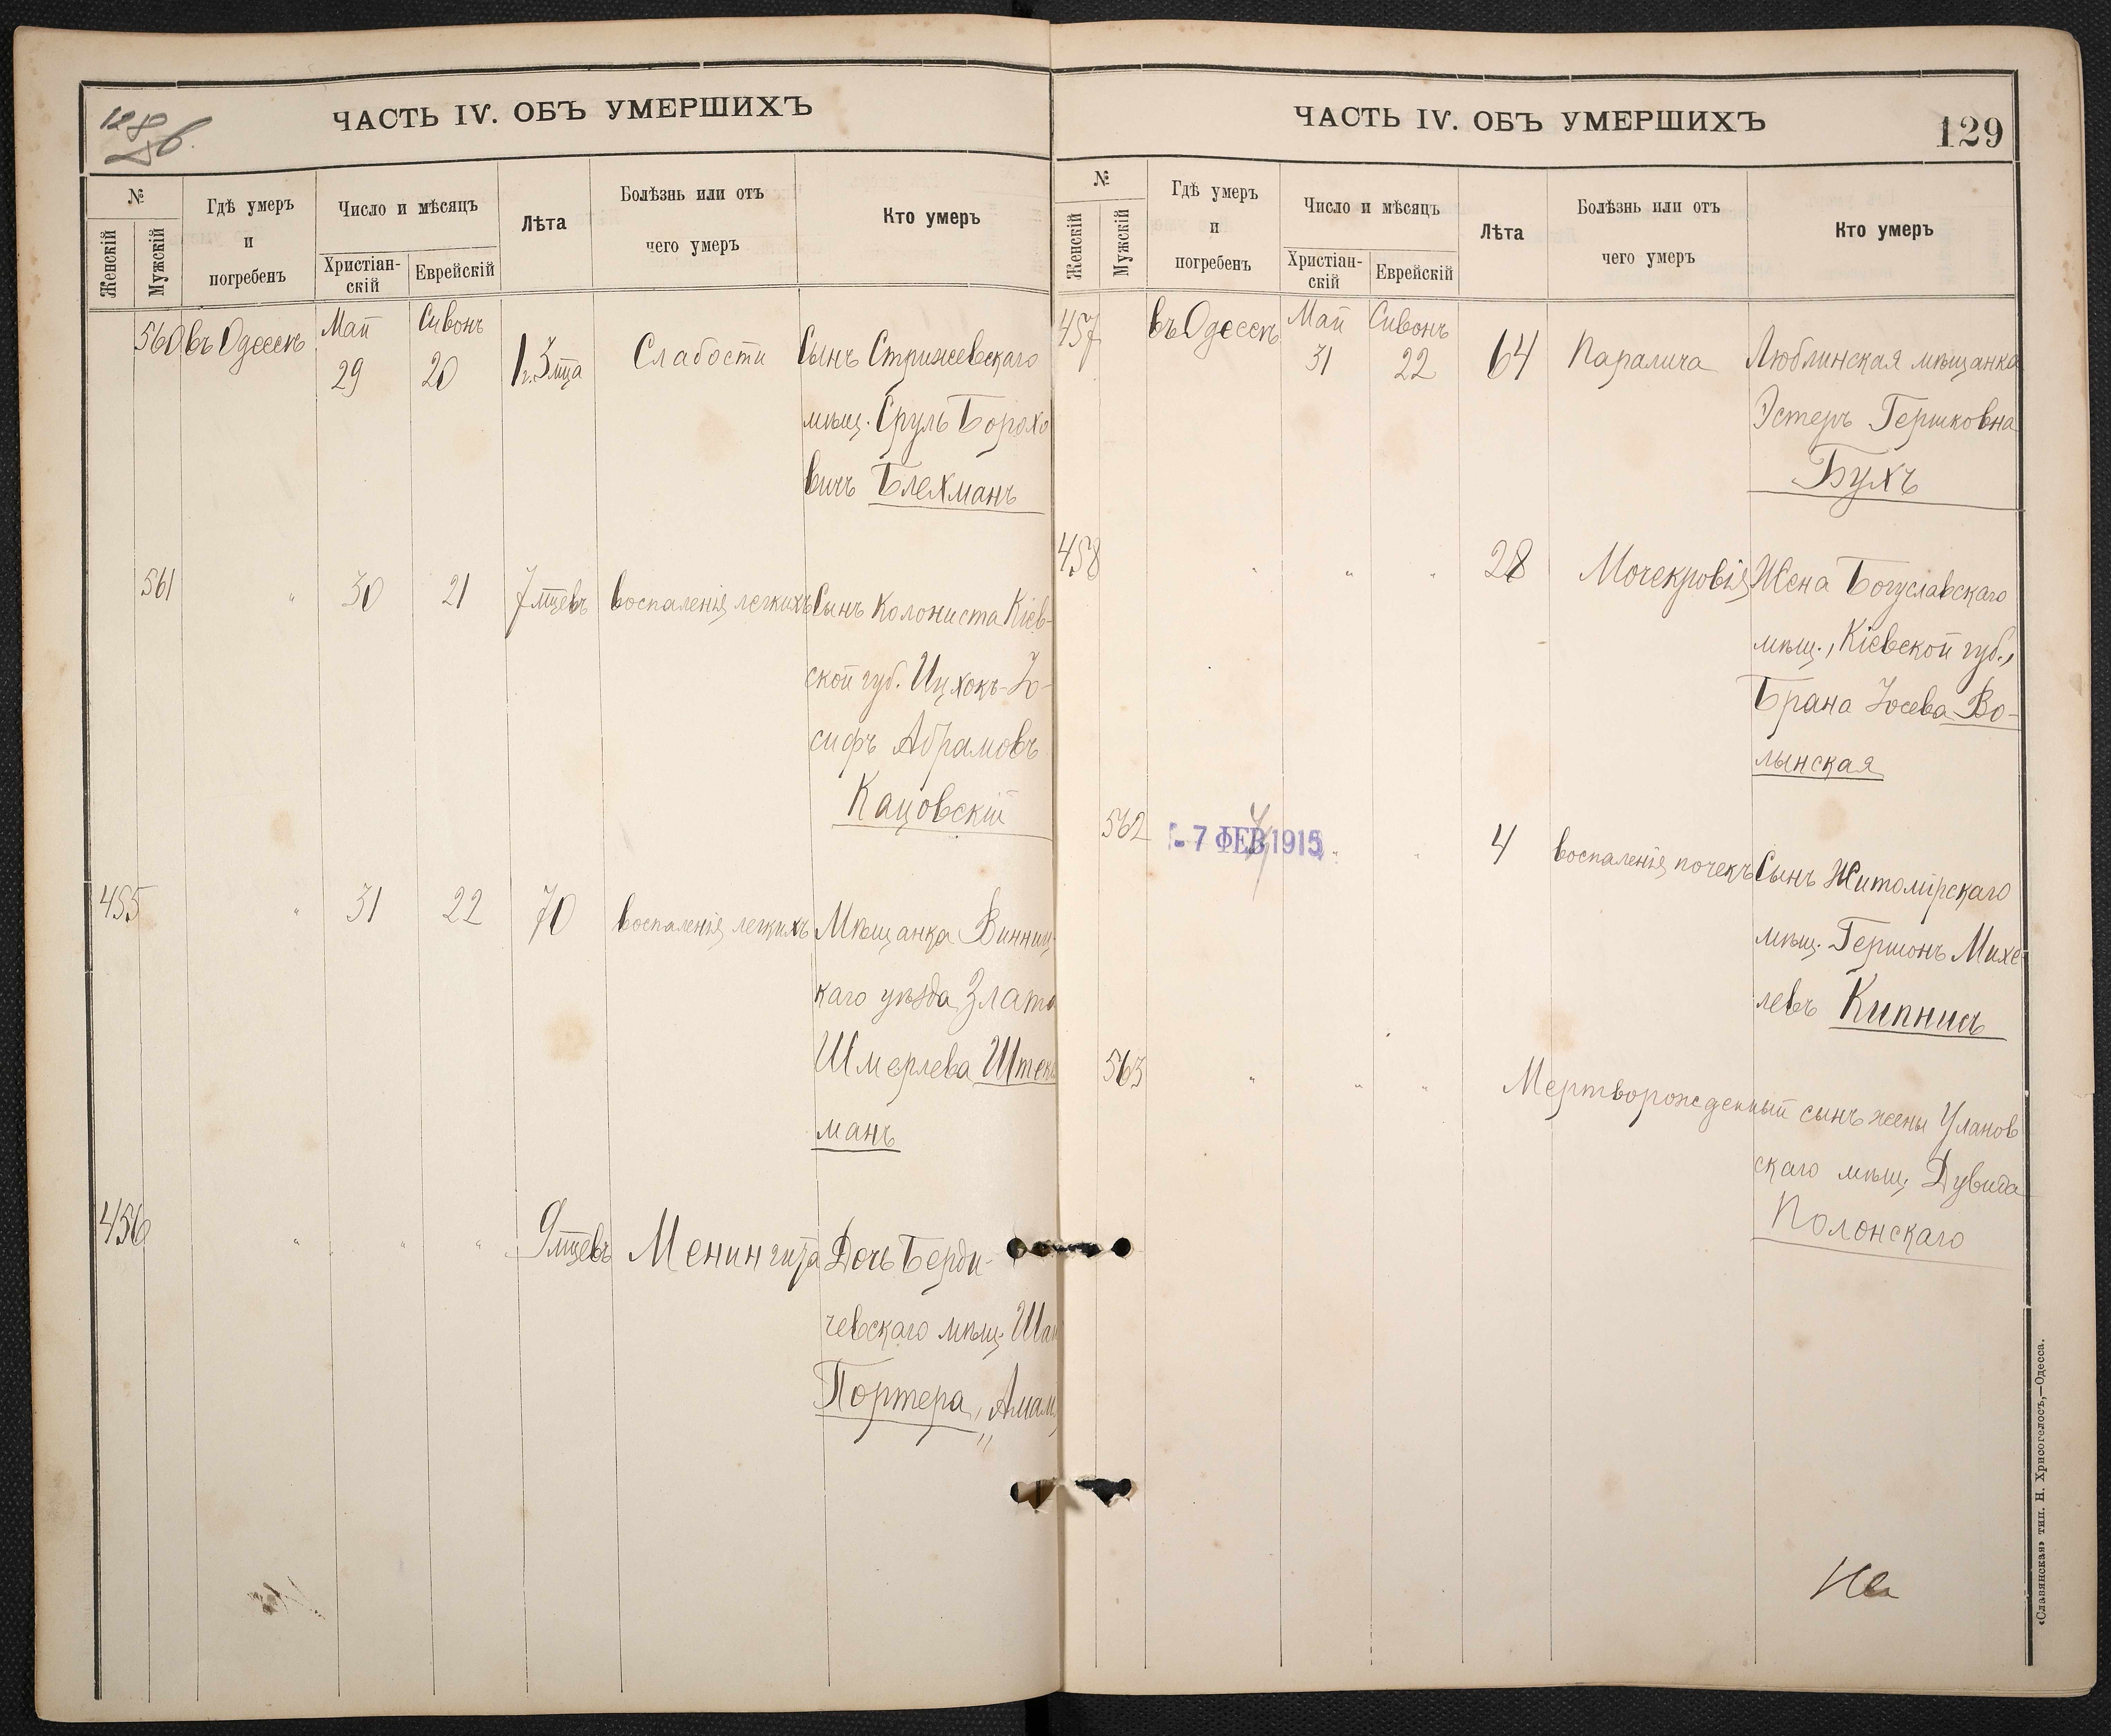 128 об.
ЧАСТЬ IV. ОБЪ УМЕРШИХЪ
№
Женскій
Мужскій
Гдѣ умеръ
и
погребенъ
Число и мѣсяцъ
Христіан-
скій
Еврейскій
Лѣта
Болѣзнь или отъ
чего умеръ
Кто умеръ
560 въ Одессѣ Май 29 Сивонъ 20 1 г. 3 мца Слабости Сынъ Стрижевскаго
мѣщ. Сруль Борохо
вичъ Блехманъ
561 " 30 21 7 мцевъ воспаленія легкихъ Сынъ Колониста Кіев-
ской губ. Ицхокъ-Іо-
сифъ Абрамовъ
Кацовскій
455 " 31 22 70 воспаленія легкихъ Мѣщанка Винниц-
каго уѣзда Злата
Шмерлева Штек
манъ
456 " " " 9 мцевъ Менингита Дочь Берди-
чевскаго мѣщ.
Портера,
ЧАСТЬ IV. ОБЪ УМЕРШИХЪ
129
№
Женскій
Мужскій
Гдѣ умеръ
и
погребенъ
Число и мѣсяцъ
Христіан-
скій
Еврейскій
Лѣта
Болѣзнь или отъ
чего умеръ
Кто умеръ
457 въ Одессѣ Май 31 Сивонъ 22 64 Паралича Люблинская мѣщанка
Эстеръ Гершковна
Бухъ
458 " " " 28 Мочекровія Жена Богуславскаго
мѣщ., Кіевской губ.,
Брана Іосева Во-
лынская
562 - 7 ФЕВ 1915 " " 4 воспаленія почекъ Сынъ Житомірскаго
мѣщ. Гершонъ Михе-
левъ Кипнисъ
563 " " " Мертворожденный сынъ жены Уланов
скаго мѣщ. Дувида
Полонскаго
«Славянская» тип. Н. Хрисогелосъ,—Одесса.